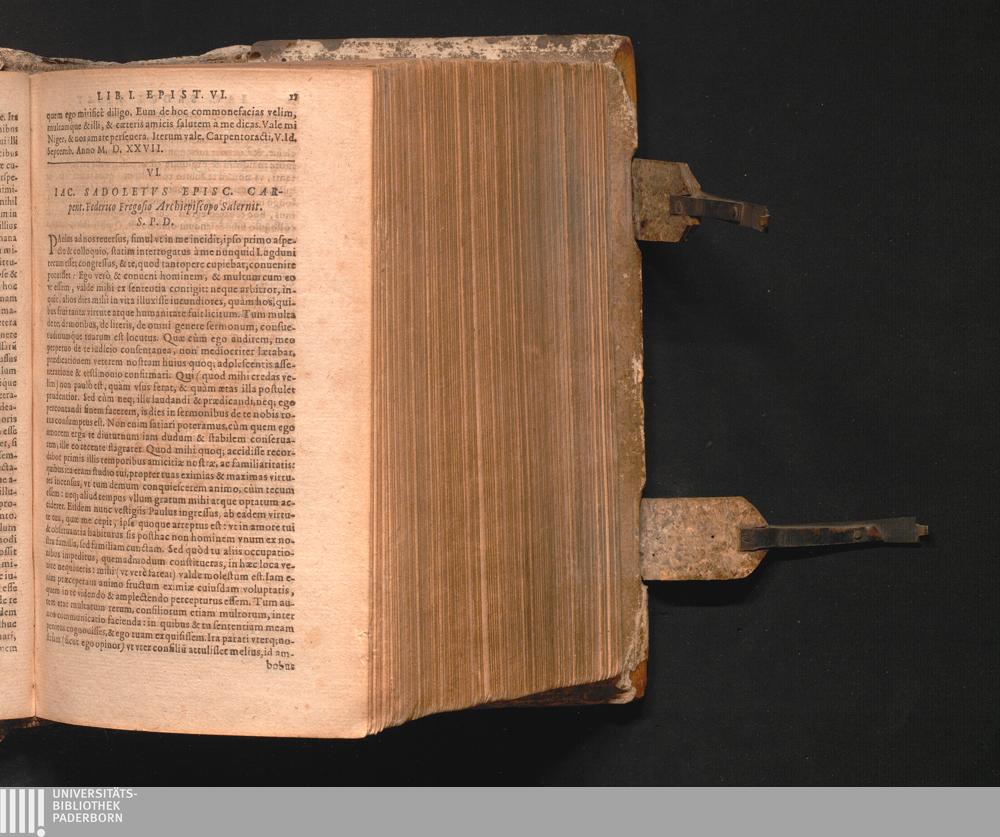 LIB. I. EPIST. VI.
quem ego mirificè diligo. Eum de hoc commonefacias velim,
multamque & illi, & cæteris amicis salutem à me dicas. Vale mi
Niger, & nos amare perseuera. Iterum vale. Carpentoracti, V. Id.
Septemb. Anno M. D. XXVII.
VI.
IAC. SADOLETVS EPISC. CAR-
pent. Federico Fregosio Archiepiscopo Salernit.
S. P. D.
ad nos reuersus, simul vt in me incidit, ipso primo aspe-
ctu & colloquio, statim interrogatus à me nunquid Lugduni
tecum esset congressus, & te, quod tantopere cupiebat, conuenire
potuisset: Ego verò, & conueni hominem, & multum cum eo
essem, valde mihi ex sententia contigit: neque arbitror, in-
quit, alios dies mihi in vita illuxisse iucundiores, quàm hos, qui-
bus frui tanta virtute atque humanitate fuit licitum. Tum multa
de te, de moribus, de literis, de omni genere sermonum, consue-
tuarum est locutus. Quæ cùm ego audirem, meo
perpetuo de te iudicio consentanea, non mediocriter lætabar,
prædicationem veterem nostram huius quoq; adolescentis asse-
& testimonio confirmari. Qui (quod mihi credas ve-
lim) non paulò est, quàm vsus ferat, & quàm ætas illa postulet
prudentior. Sed cùm neq; ille laudandi & prædicandi, neq; ego
percontandi finem facerem, is dies in sermonibus de te nobis to-
tus consumptus est. Non enim satiari poteramus, cùm quem ego
amorem erga te diuturnum iam dudum & stabilem conserua-
rem, ille eo recente flagraret. Quod mihi quoq; accidisse recor-
dabar primis illis temporibus amicitiæ nostræ, ac familiaritatis:
quibus ita eram studio tui, propter tuas eximias & maximas virtu-
tes incensus, vt tum demum conquiescerem animo, cùm tecum
essem: neq; aliud tempus vllum gratum mihi atque optatum ac-
cideret. Eisdem nunc vestigiis Paulus ingressus, ab eadem virtu-
te tua, quæ me cepit, ipse quoque arreptus est: vt in amore tui
& obseruantia habiturus sis posthac non hominem vnum ex no-
stra familia, sed familiam cunctam. Sed quòd tu aliis occupatio-
nibus impeditus, quemadmodum constitueras, in hæc loca ve-
nire nequiueris: mihi (vt verè fatear) valde molestum est. Iam e-
nim præceperam animo fructum eximiæ cuiusdam voluptatis,
quem in te videndo & amplectendo percepturus essem. Tum au-
tem erat multarum rerum, consiliorum etiam multorum, inter
nos communicatio facienda: in quibus & tu sententiam meam
penitus cognouisses, & ego tuam exquisissem. Ita parati vterq; no-
strûm (sicut ego opinor) vt vter consiliū attulisset melius, id am-
bobus
UNIVERSITÄTS-
BIBLIOTHEK
PADERBORN